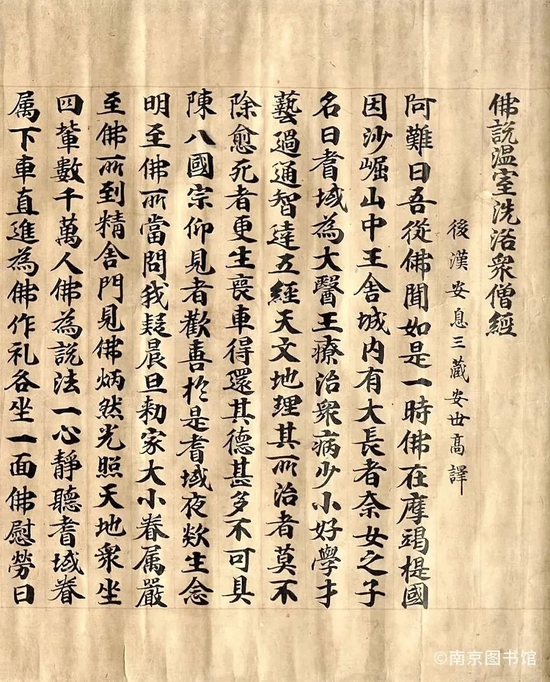 佛說温室洗浴衆僧經
後漢安息三藏安世高譯
阿難曰吾從佛聞如是一時佛在摩竭提國
因沙崛山中王舍城内有大長者柰女之子
名曰耆域為大醫王療治衆病少小好學才
藝過通智達五經天文地理其所治者莫不
除愈死者更生喪車得還其德甚多不可具
陳八國宗仰見者歡善於是耆域夜欻生念
明至佛所當問我疑晨旦勑家大小眷属嚴
至佛所到精舍門見佛炳然光照天地衆坐
四輩數千萬人佛為説法一心靜聽耆域眷
属下車直進為佛作礼各坐一面佛慰勞曰
©南京图书馆